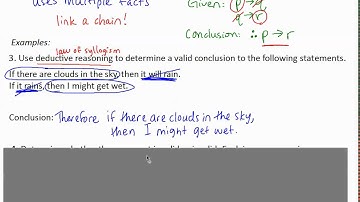 uses multiple facts
link a chain!
Given: p → q
q → r
Conclusion: ∴ p → r
Examples:
law of syllogism
3. Use deductive reasoning to determine a valid conclusion to the following statements.
If there are clouds in the sky, then it will rain.
If it rains, then I might get wet.
Conclusion: Therefore if there are clouds in the sky,
then I might get wet.